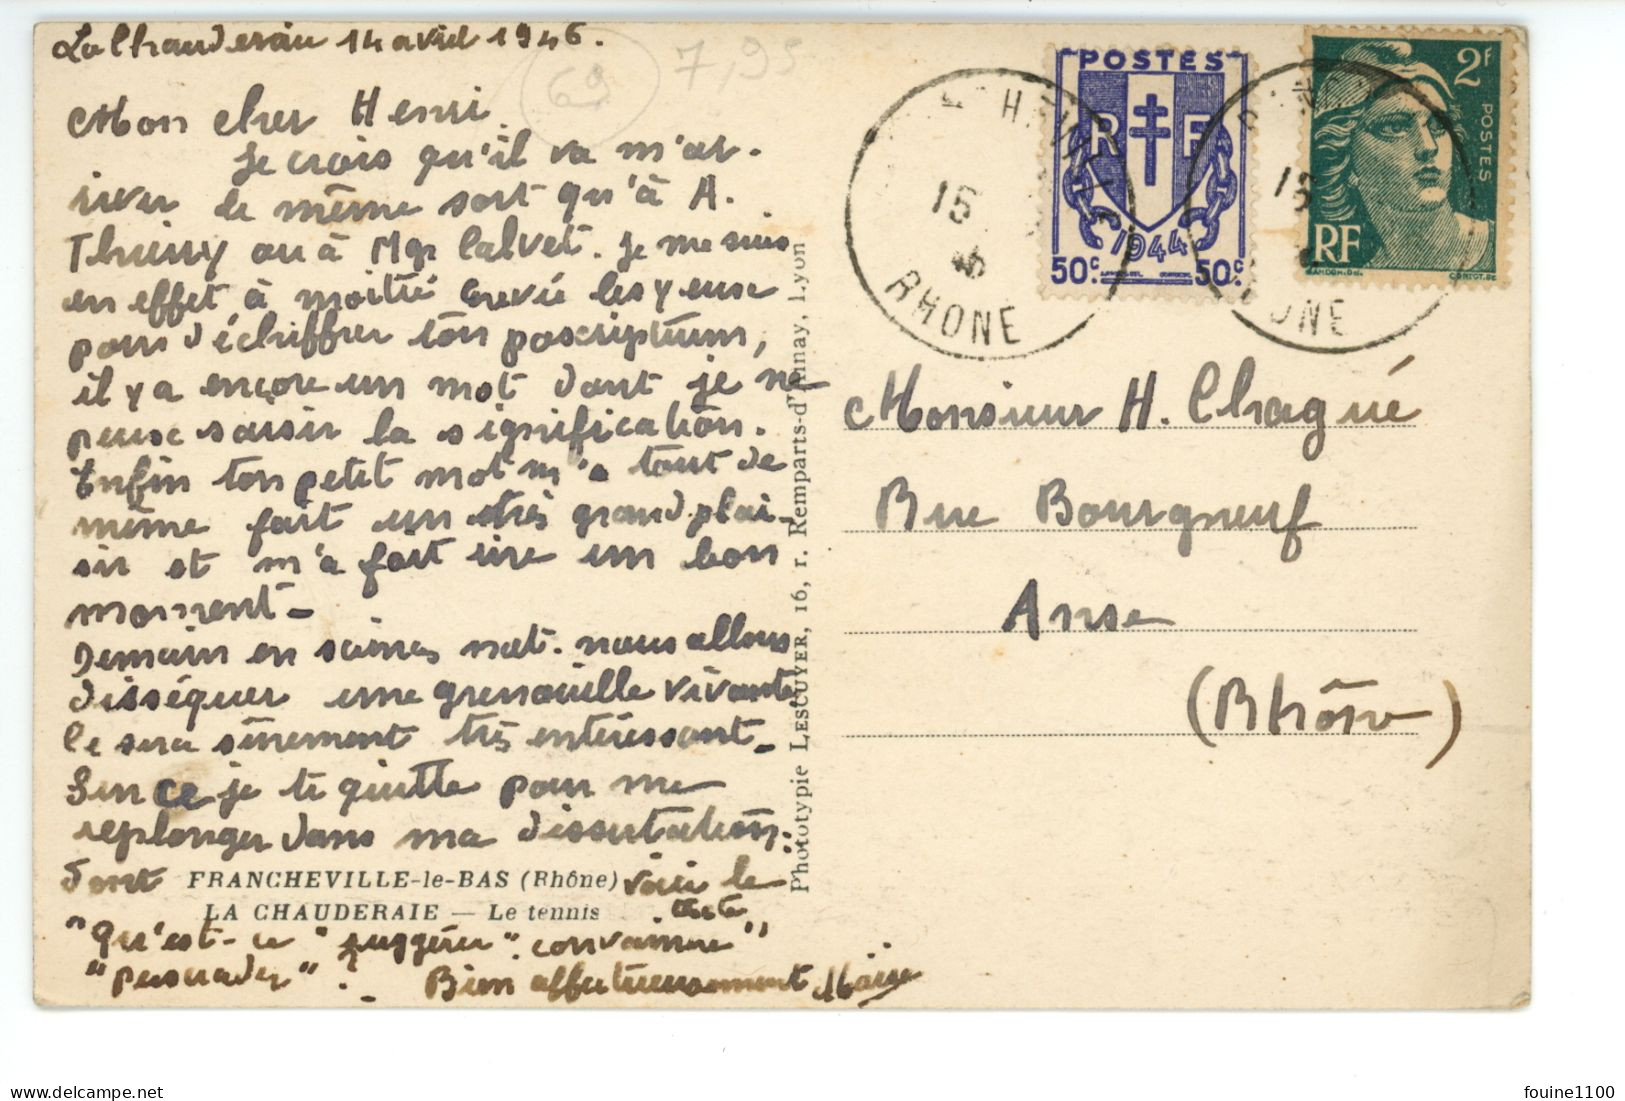 La Chauderaie 14 avril 1946.
69
7,95
Mon cher Henri
Je crois qu'il va m'ar-
river le même sort qu'à A.
Thierry ou à Mgr Calvet. Je me suis
en effet à moitié crevé les yeuse
pour déchiffrer ton poscriptum,
il y a encore un mot dont je ne
peuse saisir la signification.
Enfin ton petit mot m'a tout de
même fait un très grand plai-
sir et m'a fait rire un bon
moment -
Demain en scienes nat. nous allons
disséquer une grenouille vivante
Ce sera sûrement très intéressant -
Sur ce je te quitte pour me
replonger dans ma dissertation.
dont FRANCHEVILLE-le-BAS (Rhône) voici le
LA CHAUDERAIE — Le tennis texte
"Qu'est-ce "suggérer" convaincre"
"persuader" ? Bien affectueusement
Phototypie LESCUYER, 16, r. Remparts-d'Ainay, Lyon
POSTES
RF
1944
50c. 50c.
2F
POSTES
RF
15
46
RHONE
15
Monsieur H. Chagué
Rue Bourgneuf
Anse
(Rhône)
fouine1100